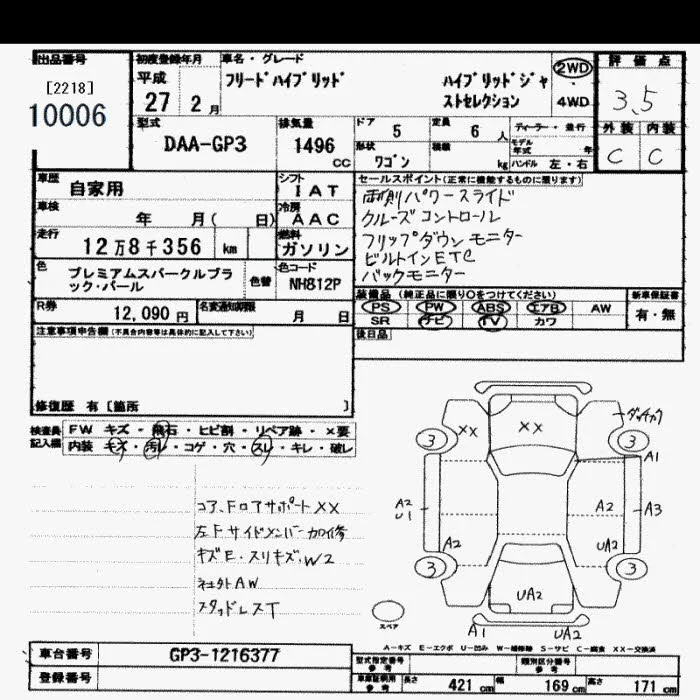 出品番号
[2218]
10006
初度登録年月
平成
27 2月
車名・グレード
フリードハイブリッド ハイブリッドジャストセレクション
2WD
4WD
評価点
3.5
外装 内装
C C
型式
DAA-GP3
排気量
1496 CC
ドア 5
定員 6 人
形状 ワゴン
積載 kg
ディーラー・並行
モデル年式 年
ハンドル 左・右
車歴 自家用
シフト IAT
車検 年 月( 日)
冷房 AAC
走行 12万8千356 km
燃料 ガソリン
色 プレミアムスパークルブラック・パール
色替
色コード NH812P
R券 12,090 円
名変通知期限 月 日
セールスポイント(正常に機能するものに限ります)
両側パワースライド
クルーズコントロール
フリップダウンモニター
ビルトインETC
バックモニター
装備品 (純正品に限り○をつけてください)
PS PW ABS エアB AW
SR ナビ TV カワ
新車保証書
有・無
後日品
注意事項申告欄(不具合内容等は具体的に記入して下さい)
修復歴 有 [箇所 ]
検査員記入欄
FW キズ・飛石・ヒビ割・リペア跡・×要
内装 モズ・汚レ・コゲ・穴・スレ・キレ・破レ
コア、Fロアサポート××
左Fサイドメンバー加修
キズE・スリキズ・W2
ネコクトAW
スタッドレスT
×× ××
3 3
A1
A2
U1
A2 A3
A2 UA2
3 3
UA2
スペア
A1 UA2
A−キズ E−エクボ U−凹み W−補修跡 S−サビ C−腐食 ××−交換済
車台番号 GP3-1216377
登録番号
型式指定番号 参考
類別区分番号 参考
車庫証明用 参考
長さ 421 cm 幅 169 cm 高さ 171 cm